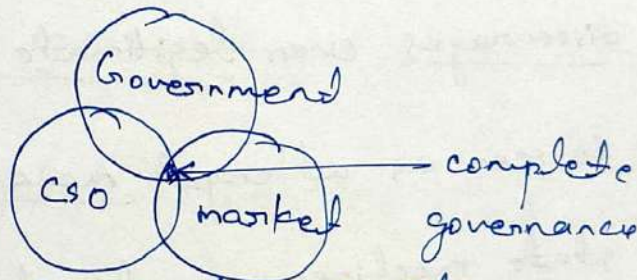 Government
CSO
market
complete
governance